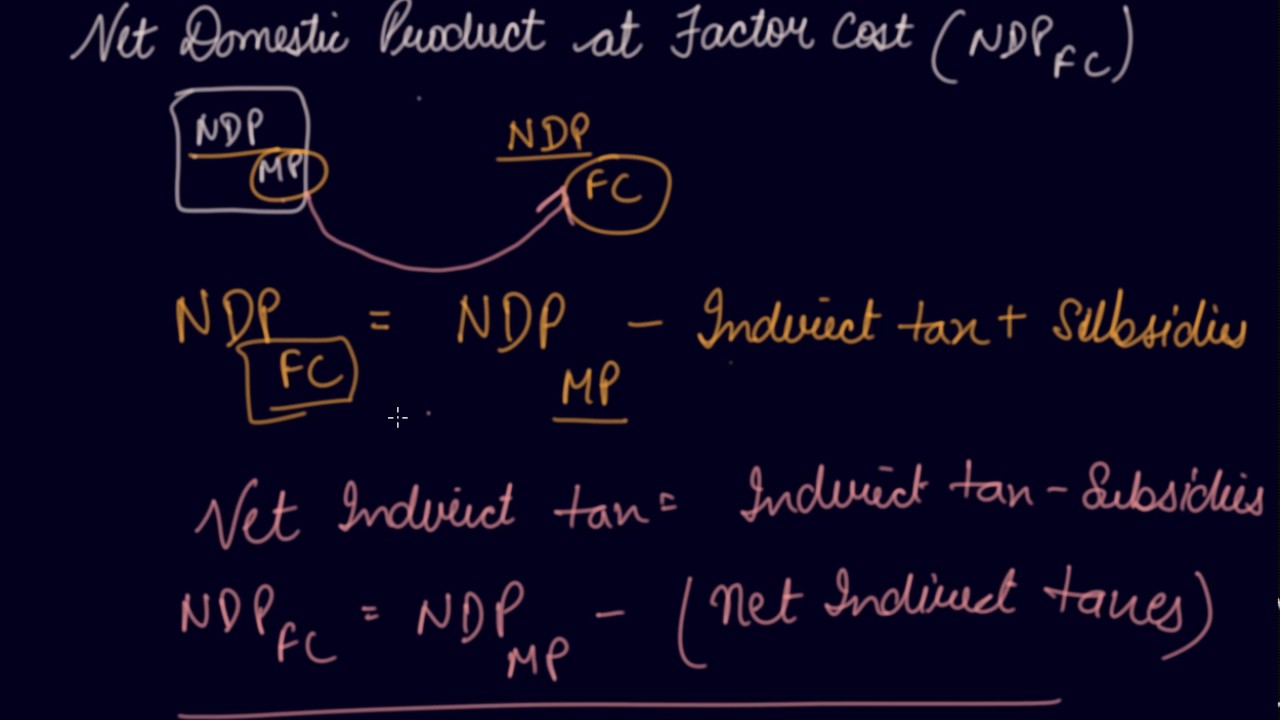 Net Domestic Product at Factor Cost (NDP FC)
NDP MP NDP FC
NDP FC = NDP MP - Indirect tax + Subsidies
Net Indirect tax = Indirect tax - Subsidies
NDP FC = NDP MP - (Net Indirect taxes)